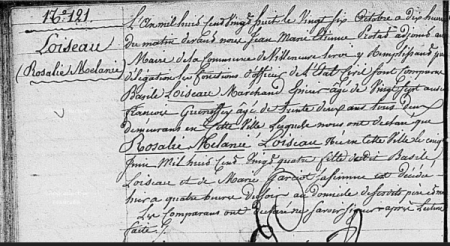 N.º 121.
Loiseau
(Rosalie Melanie)
L'An mil huit cent vingt huit le vingt six Octobre a dix heures
du matin devant nous Jean Marie Etienne adjoint au
Maire de la Commune de Villeneuve remplissant par
délégation les fonctions d'officier de l'Etat Civil sont Comparus
Basile Loiseau Marchand Epicier âgé de vingt sept ans et
François âgé de trente deux ans tous deux
demeurans en cette Ville lesquels nous ont déclaré que
Rosalie Melanie Loiseau née en cette Ville le cinq
Juin mil huit cent vingt quatre fille de Basile
Loiseau et de Marie sa femme est décédée
hier a quatre heures du soir au domicile de ses père et mère
Les Comparans ont déclaré ne savoir signer après lecture
faite